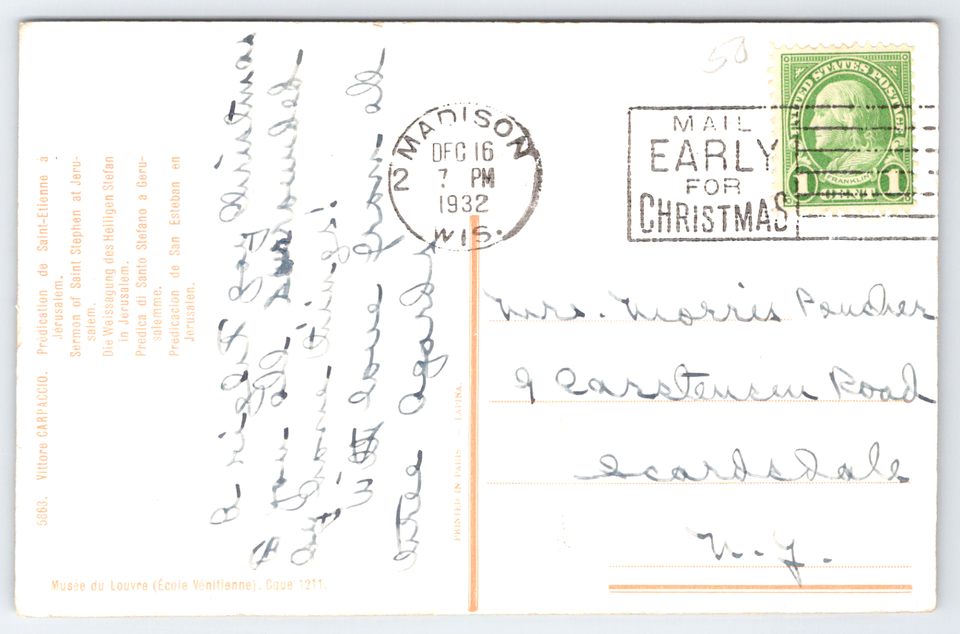 5863. Vittore CARPACCIO. Prédication de Saint-Etienne à
Jérusalem.
Sermon of Saint Stephen at Jeru-
salem.
Die Weissagung des Heiligen Stefan
in Jerusalem.
Predica di Santo Stefano a Geru-
salemme.
Predicacion de San Esteban en
Jerusalen.
Musée du Louvre (École Vénitienne). Gque 1211.
A right gay Christmas
to you all surrounded
by
things!
With love from all
the
PRINTED IN PARIS – LAPINA
50
MADISON
2
DEC 16
7 PM
1932
WIS.
MAIL
EARLY
FOR
CHRISTMAS
UNITED STATES POSTAGE
FRANKLIN
1 CENT 1
Mrs. Morris Poucher
9 Carstensen Road
Scardsdale
N.Y.